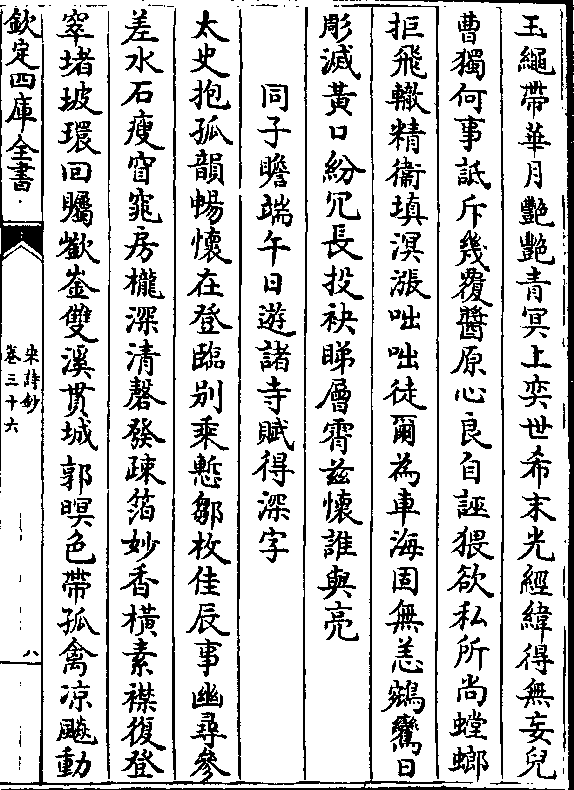 玉繩帶華月艷艷青冥上奕世希末光經緯得無妄兒
曹獨何事詆斥幾覆醬原心良自誣猥欲私所尚螳螂
拒飛轍精衞填溟漲咄咄徒爾為車海固無恙鵷鸞日
彫滅黃口紛冗長投袂睇層霄兹懷誰與亮
同子瞻端午日遊諸寺賦得深字
太史抱孤韻暢懷在登臨别乘慙鄒枚佳辰事幽尋參
差水石瘦窅窕房櫳深清磬發疎箔妙香橫素襟復登
窣堵坡環回矚嶔崟雙溪貫城郭暝色帶孤禽凉飈動
欽定四庫全書
宋詩鈔
卷三十六
八